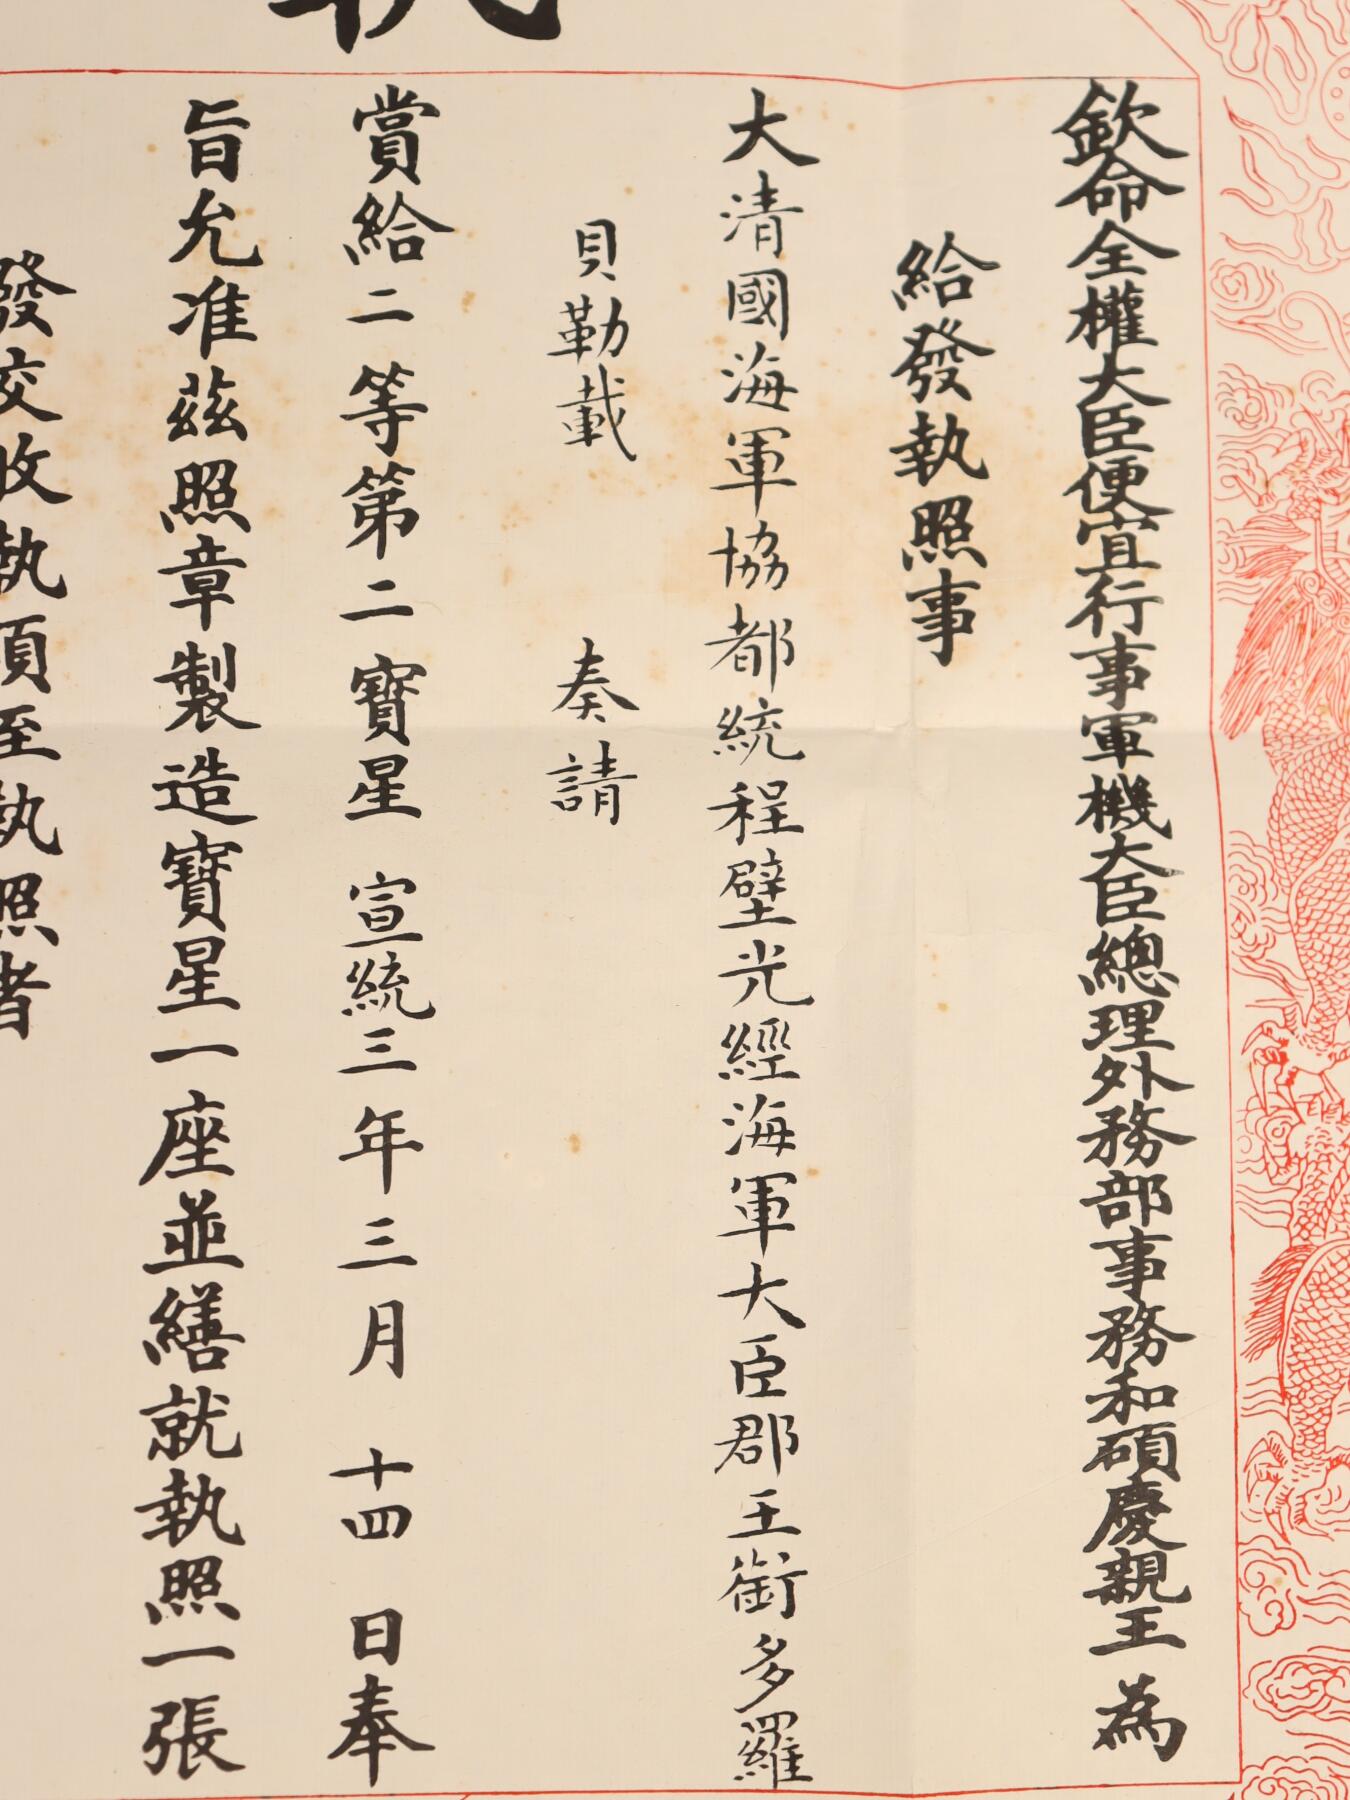 欽命全權大臣便宜行事軍機大臣總理外務部事務和碩慶親王為
給發執照事
大清國海軍協都統程璧光經海軍大臣郡王銜多羅
貝勒載 奏請
賞給二等第二寶星 宣統三年三月十四日奉
旨允准茲照章製造寶星一座並繕就執照一張
發交收執須至執照者